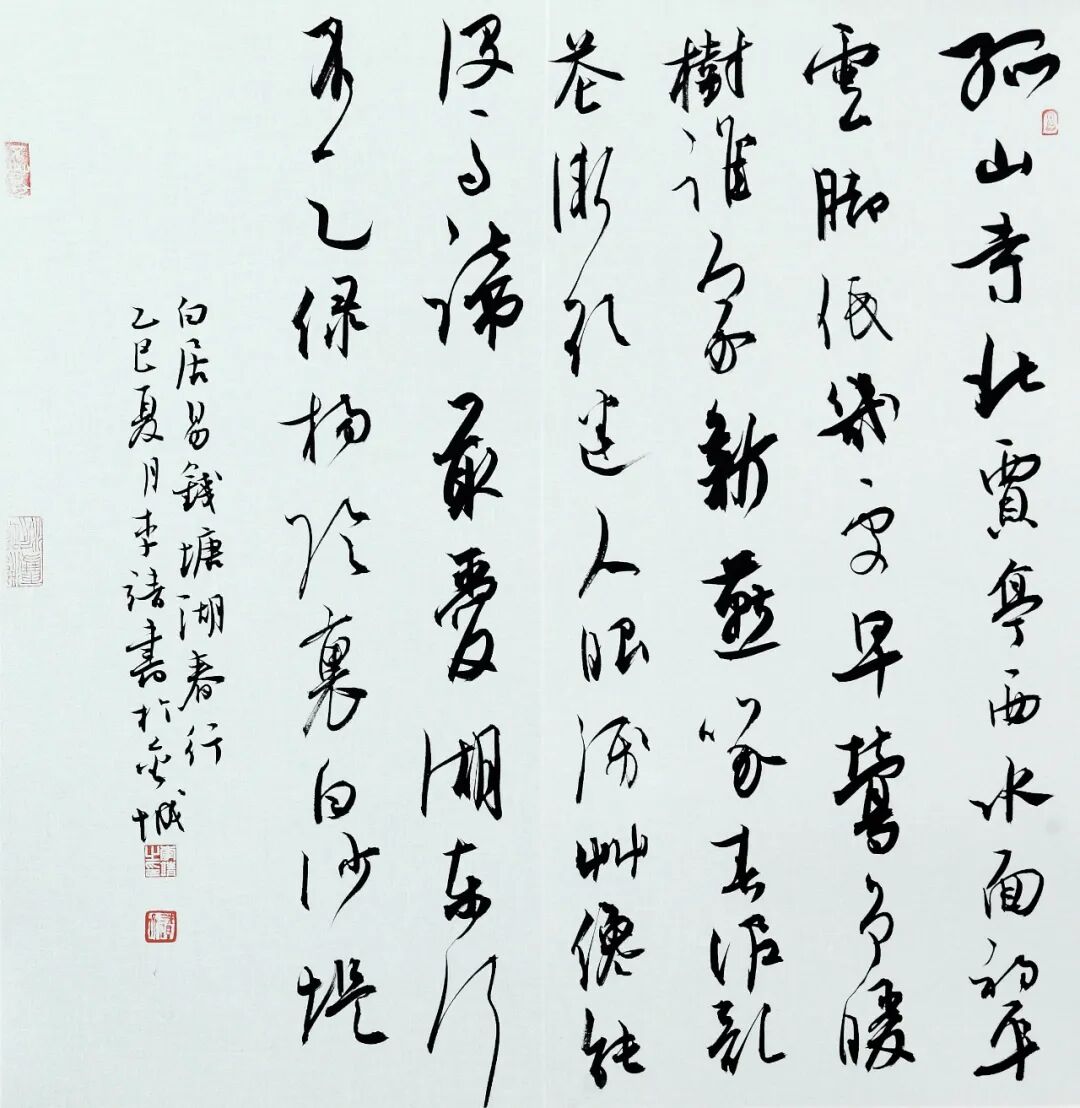 孤山寺北賈亭西水面初平
雲脚低幾處早鶯爭暖
樹誰家新燕啄春泥亂
花漸欲迷人眼淺艸纔能
沒馬蹄最愛湖東行
不足綠楊陰裏白沙堤
白居易錢塘湖春行
乙巳夏月李書於金城